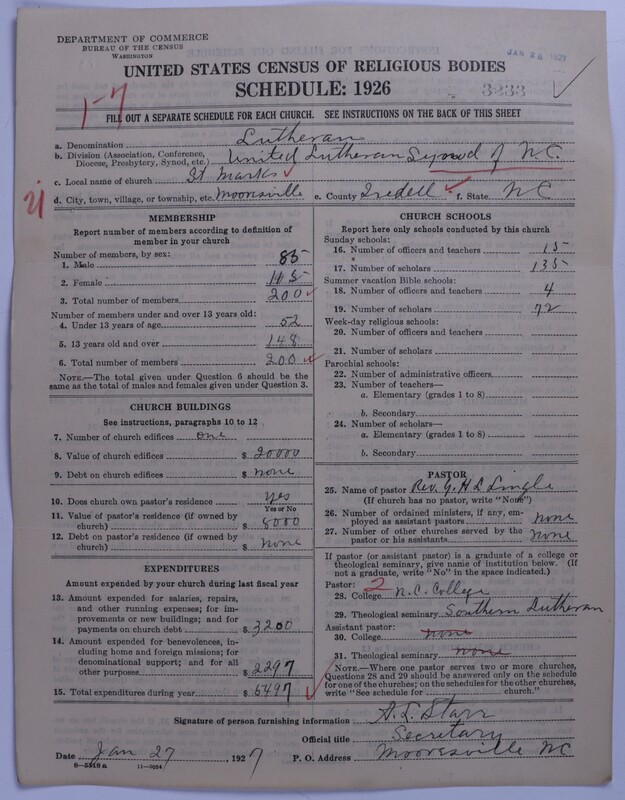 DEPARTMENT OF COMMERCE
BUREAU OF THE CENSUS
WASHINGTON
JAN 28 1927
UNITED STATES CENSUS OF RELIGIOUS BODIES
SCHEDULE: 1926
3233
1-7
FILL OUT A SEPARATE SCHEDULE FOR EACH CHURCH. SEE INSTRUCTIONS ON THE BACK OF THIS SHEET
a. Denomination Lutheran
b. Division (Association, Conference, Diocese, Presbytery, Synod, etc.) United Lutheran Synod of N.C.
c. Local name of church St Marks
d. City, town, village, or township, etc. Mooresville e. County Iredell f. State NC
MEMBERSHIP
Report number of members according to definition of
member in your church
Number of members, by sex:
1. Male 85
2. Female 115
3. Total number of members 200
Number of members under and over 13 years old:
4. Under 13 years of age 52
5. 13 years old and over 148
6. Total number of members 200
NOTE.—The total given under Question 6 should be
the same as the total of males and females given under Question 3.
CHURCH BUILDINGS
See instructions, paragraphs 10 to 12
7. Number of church edifices one
8. Value of church edifices $ 20000
9. Debt on church edifices $ none
10. Does church own pastor's residence yes
Yes or No
11. Value of pastor's residence (if owned by
church) $ 8000
12. Debt on pastor's residence (if owned by
church) $ none
EXPENDITURES
Amount expended by your church during last fiscal year
13. Amount expended for salaries, repairs,
and other running expenses; for im-
provements or new buildings; and for
payments on church debt $ 3200
14. Amount expended for benevolences, in-
cluding home and foreign missions; for
denominational support; and for all
other purposes $ 2297
15. Total expenditures during year $ 5497
CHURCH SCHOOLS
Report here only schools conducted by this church
Sunday schools:
16. Number of officers and teachers 15
17. Number of scholars 135
Summer vacation Bible schools:
18. Number of officers and teachers 4
19. Number of scholars 72
Week-day religious schools:
20. Number of officers and teachers
21. Number of scholars
Parochial schools:
22. Number of administrative officers
23. Number of teachers—
a. Elementary (grades 1 to 8)
b. Secondary
24. Number of scholars—
a. Elementary (grades 1 to 8)
b. Secondary
PASTOR
25. Name of pastor Rev. G. H. L. Lingle
(If church has no pastor, write "None")
26. Number of ordained ministers, if any, em-
ployed as assistant pastors none
27. Number of other churches served by the
pastor or his assistants none
If pastor (or assistant pastor) is a graduate of a college or
theological seminary, give name of institution below. (If
not a graduate, write "No" in the space indicated.)
Pastor: 2
28. College N.C. College
29. Theological seminary Southern Lutheran
Assistant pastor:
30. College none
31. Theological seminary none
NOTE.—Where one pastor serves two or more churches,
Questions 28 and 29 should be answered only on the schedule
for one of the churches; on the schedules for the other churches,
write "See schedule for church."
Signature of person furnishing information A. L. Starr
Official title Secretary
Date Jan 27, 1927 P. O. Address Mooresville NC
8-5318a 11-9054